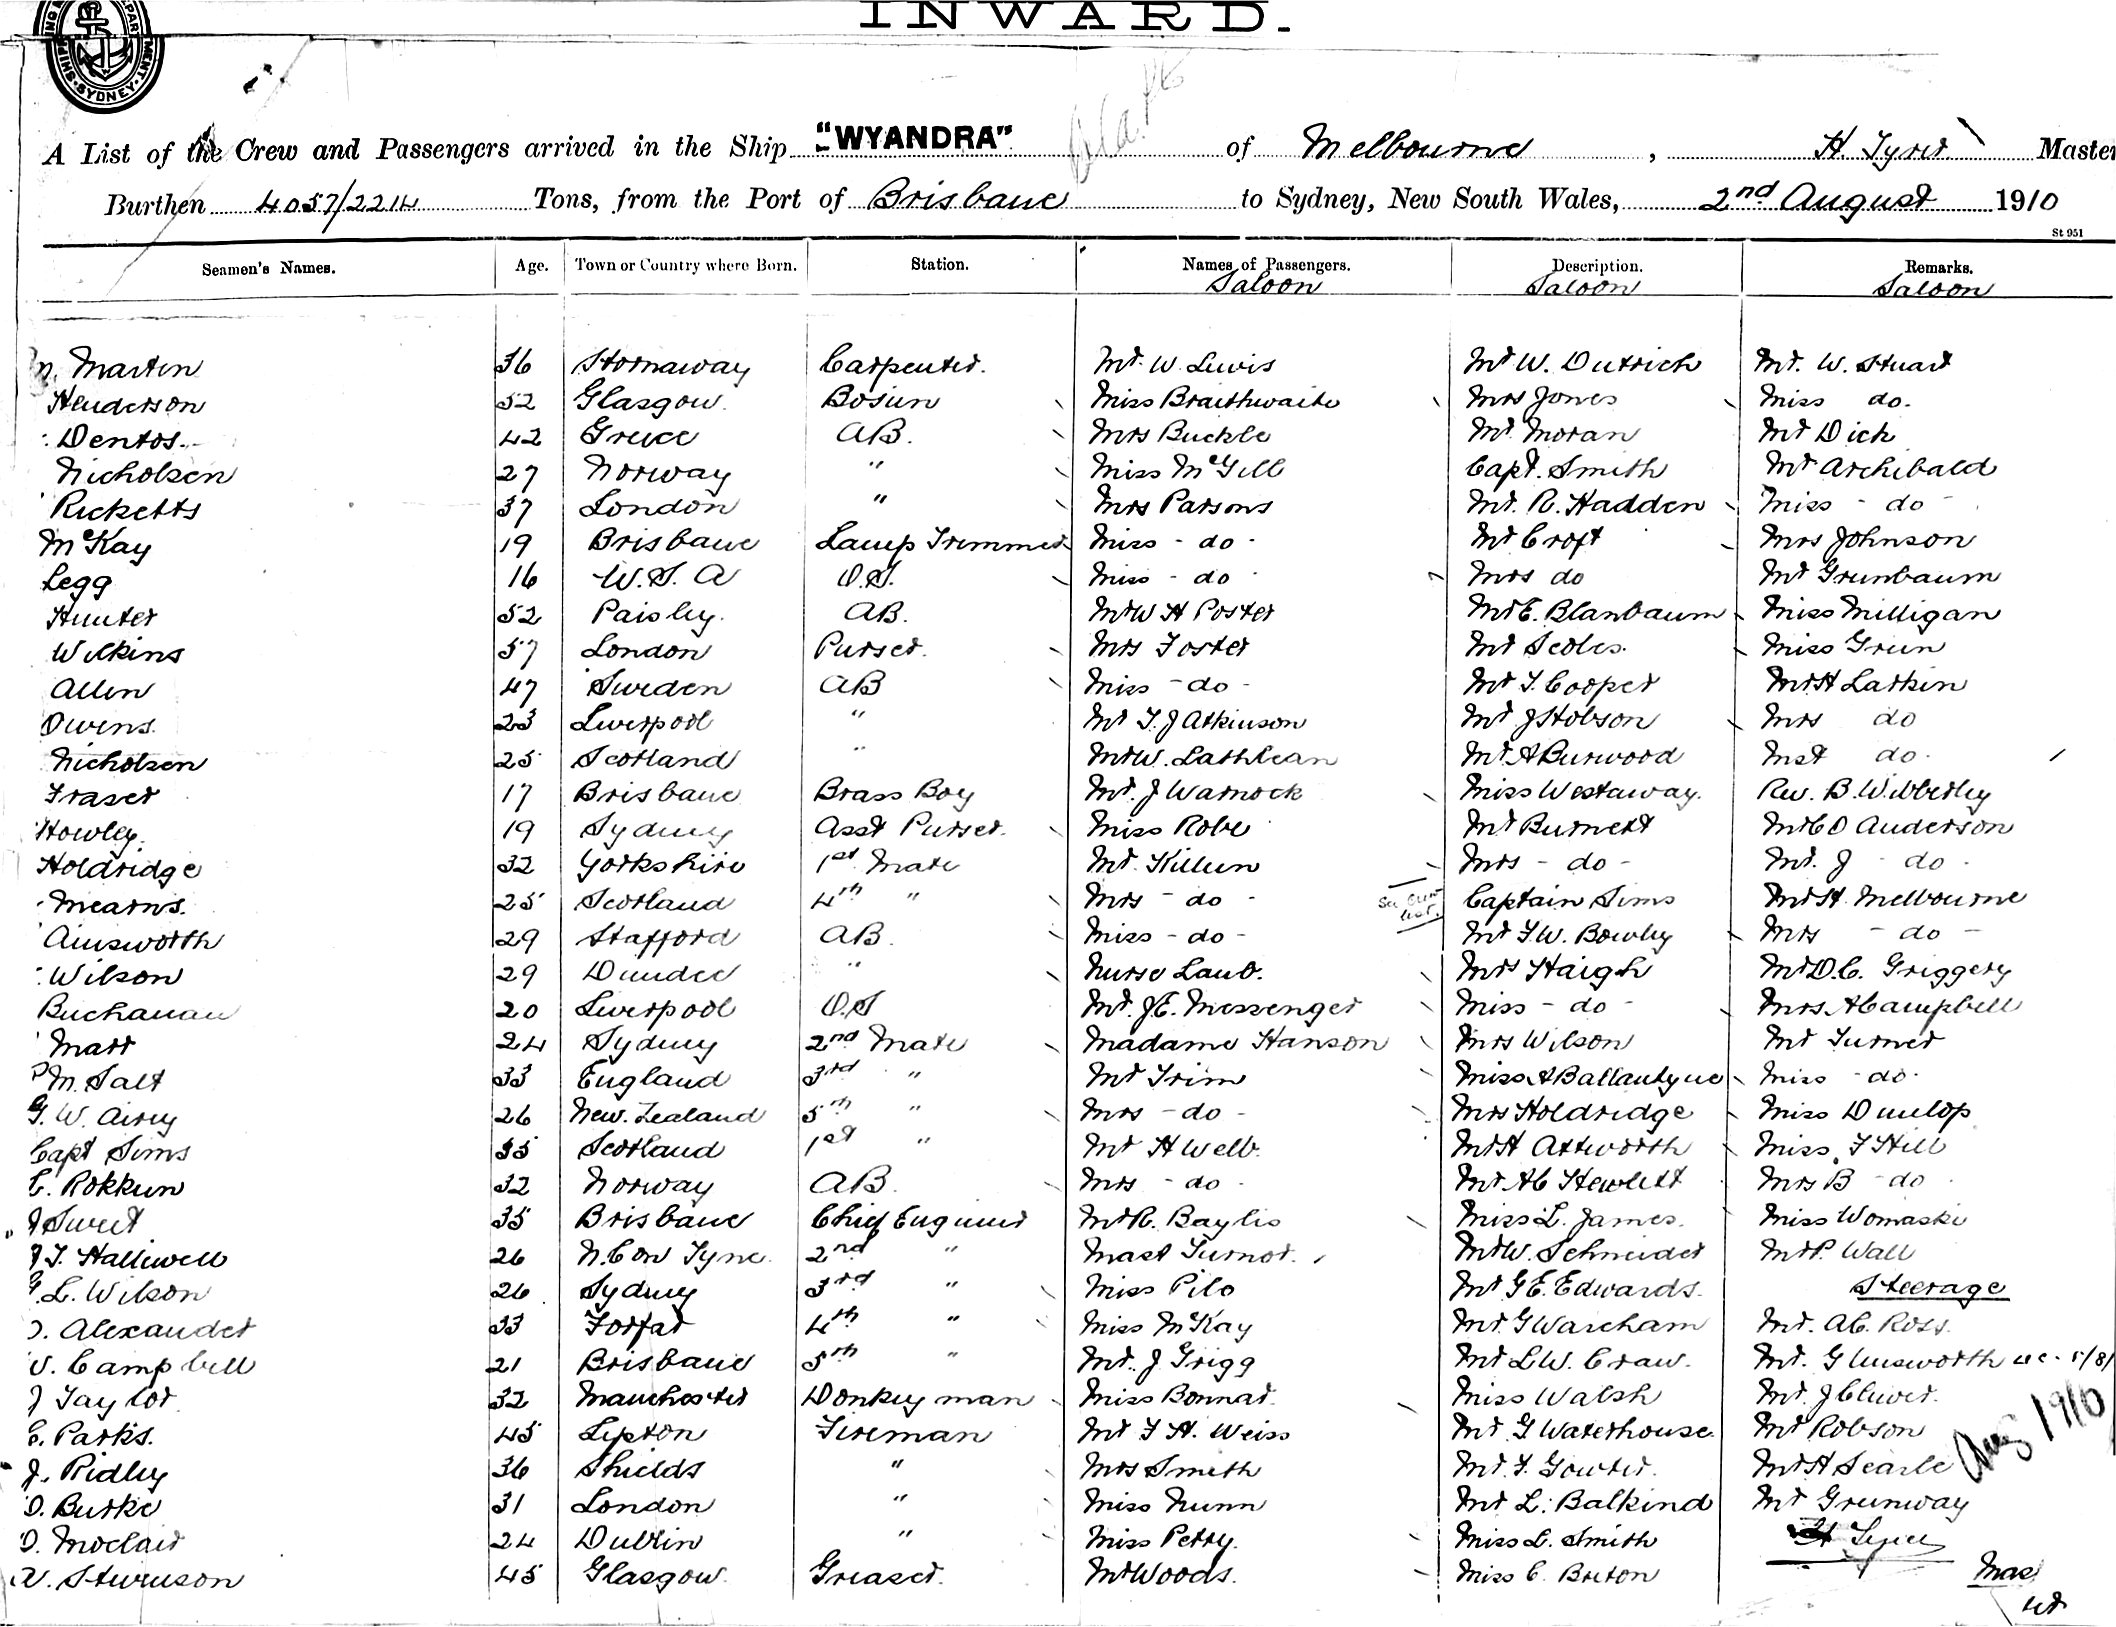 INWARD.
SHIPPING DEPARTMENT SYDNEY
A List of the Crew and Passengers arrived in the Ship "WYANDRA" of Melbourne, H. Tyrer Master
Burthen 4057/2214 Tons, from the Port of Brisbane to Sydney, New South Wales, 2nd August 1910
St 951
Seamen's Names. Age. Town or Country where Born. Station. Names of Passengers. Description. Remarks.
Saloon Saloon Saloon
Martin 36 Stornaway Carpenter. Mr W. Lewis Mr W. Dutrich Mr. W. Stuart
Henderson 52 Glasgow. Bosun Miss Braithwaite Mrs Jones Miss do.
Dentos. 42 Greece AB. Mrs Buckle Mr Moran Mr Dick
Nicholsen 27 Norway " Miss McGill Capt. Smith Mr Archibald
Ricketts 37 London " Mrs Parsons Mr. R. Hadden Miss - do -
McKay 19 Brisbane Lamp Trimmer Miss - do - Mr Croft Mrs Johnson
Legg 16 W.S. A O.S. Miss - do - Mrs do Mr Grunbaum
Hunter 52 Paisley. AB. Mr W H Poster Mr E. Blanbaum Miss Milligan
Wilkins 57 London Purser. Mrs Foster Mr Scoles. Miss Green
Allen 47 Sweden AB Miss - do - Mr T. Cooper Mr H Larkin
Owens. 23 Liverpool " Mr T. J Atkinson Mr J Hobson Mrs do
Nicholsen 25 Scotland " Mr W. Lathlean Mr A Burwood Mast do.
Fraser 17 Brisbane Brass Boy Mr. J Warnock Miss Westaway. Rev. B. Wibberley
Howley. 19 Sydney Asst Purser. Miss Robe Mr Burnett Mr C D Anderson
Holdridge 32 Yorkshire 1st Mate Mr. Killen Mrs - do - Mr. J - do -
Mearns. 25 Scotland 4th " Mrs - do - See Crew list. Captain Sims Mr H. Melbourne
Ainsworth 29 Stafford AB. Miss - do - Mr F. W. Bowley Mrs - do -
Wilson 29 Dundee " Nurse Laub. Mrs Haigh Mr D. C. Griggery
Buchanan 20 Liverpool O.S Mr. J E. Messenger Miss - do - Mrs A Campbell
Marr 24 Sydney 2nd Mate Madame Hanson Mrs Wilson Mr Turner
P M. Salt 33 England 3rd " Mr Trim Miss A Ballantyne Miss do
G. W. Airey 26 New. Zealand 5th " Mrs - do - Mrs Holdridge Miss Dunlop
Capt Sims 35 Scotland 1st " Mr H Webb. Mr H Attworth Miss. F Hill
C. Rokkun 32 Norway AB. Mrs - do - Mr A C Hewlett Mrs B - do
J Sweet 35 Brisbane Chief Engineer Mr R. Baylis Miss L. James. Miss Womaski
J T. Halliwell 26 N. C on Tyne. 2nd " Mast Turnor. Mr W. Schneider Mr P. Wall
G. L. Wilson 26 Sydney 3rd " Miss Pilo Mr G E. Edwards. Steerage
D. Alexander 33 Forfar 4th " Miss McKay Mr. G Wareham Mr. A C. Ross.
Campbell 21 Brisbane 5th " Mr. J Grigg Mr L W. Craw. Mr. G Unsworth
J Taylor 32 Manchester Donkeyman Miss Bonnar. Miss Walsh Mr. J Cluver.
E. Parks. 45 Lepton Fireman Mr F H. Weiss Mr G Waterhouse. Mr Robson
J. Ridley 36 Shields " Mrs Smith Mr. F. Gowter. Mr H Searle
Aug 1910
D. Burke 31 London " Miss Nunn Mr L. Balkind Mr Grunway
D. Moclair 24 Dublin " Miss Petty. Miss L. Smith H Tyrer
Stevenson 45 Glasgow. Greaser. Mr Woods. Miss C. Breton Mas